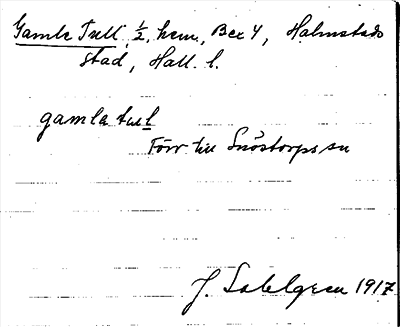 Gamla Tull, ½, hem., Bex 4, Halmstads
stad, Hall. l.
gamla tul
Förr till Snöstorps sn
J. Sahlgren 1917